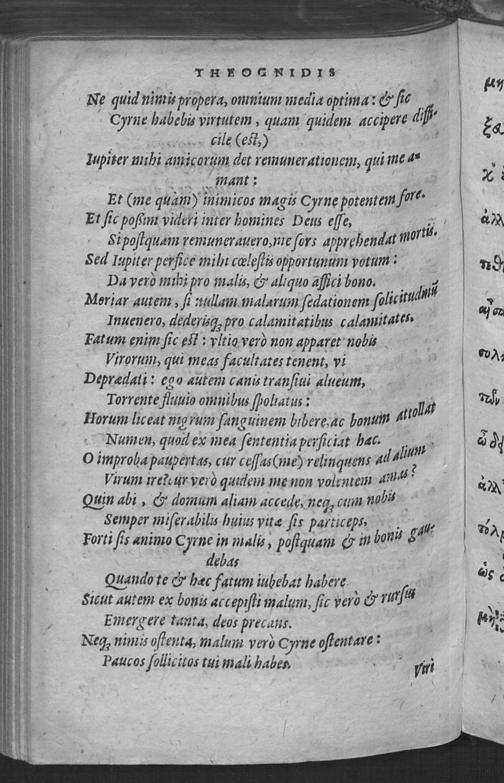 THEOGNIDIS
Ne quid nimis propera, omnium media optima: & sic
Cyrne habebis virtutem, quam quidem accipere diffi-
cile (est,)
Iupiter mihi amicorum det remunerationem, qui me a-
mant:
Et (me quàm) inimicos magis Cyrne potentem fore.
Et sic poßim videri inter homines Deus esse,
Si postquam remunerauero, me sors apprehendat mortis.
Sed Iupiter perfice mihi cœlestis opportunum votum:
Da verò mihi pro malis, & aliquo affici bono.
Moriar autem, si nullam malarum sedationem solicitudinũ
Inuenero, dederisq́; pro calamitatibus calamitates.
Fatum enim sic est: vltio verò non apparet nobis
Virorum, qui meas facultates tenent, vi
Deprædati: ego autem canis transiui alueum,
Torrente fluuio omnibus spoliatus:
Horum liceat nigrum sanguinem bibere, ac bonum attollat
Numen, quod ex mea sententia perficiat hac.
O improba paupertas, cur cessas (me) relinquens ad alium
Virum ire? cur verò quidem me non volentem amas?
Quin abi, & domum aliam accede, neq; cum nobis
Semper miserabilis huius vitæ sis particeps,
Forti sis animo Cyrne in malis, postquam & in bonis gau-
debas
Quando te & hac fatum iubebat habere
Sicut autem ex bonis accepisti malum, sic verò & rursus
Emergere tanta, deos precans.
Neq; nimis ostenta, malum verò Cyrne ostentare:
Paucos sollicitos tui mali habes.
Viri